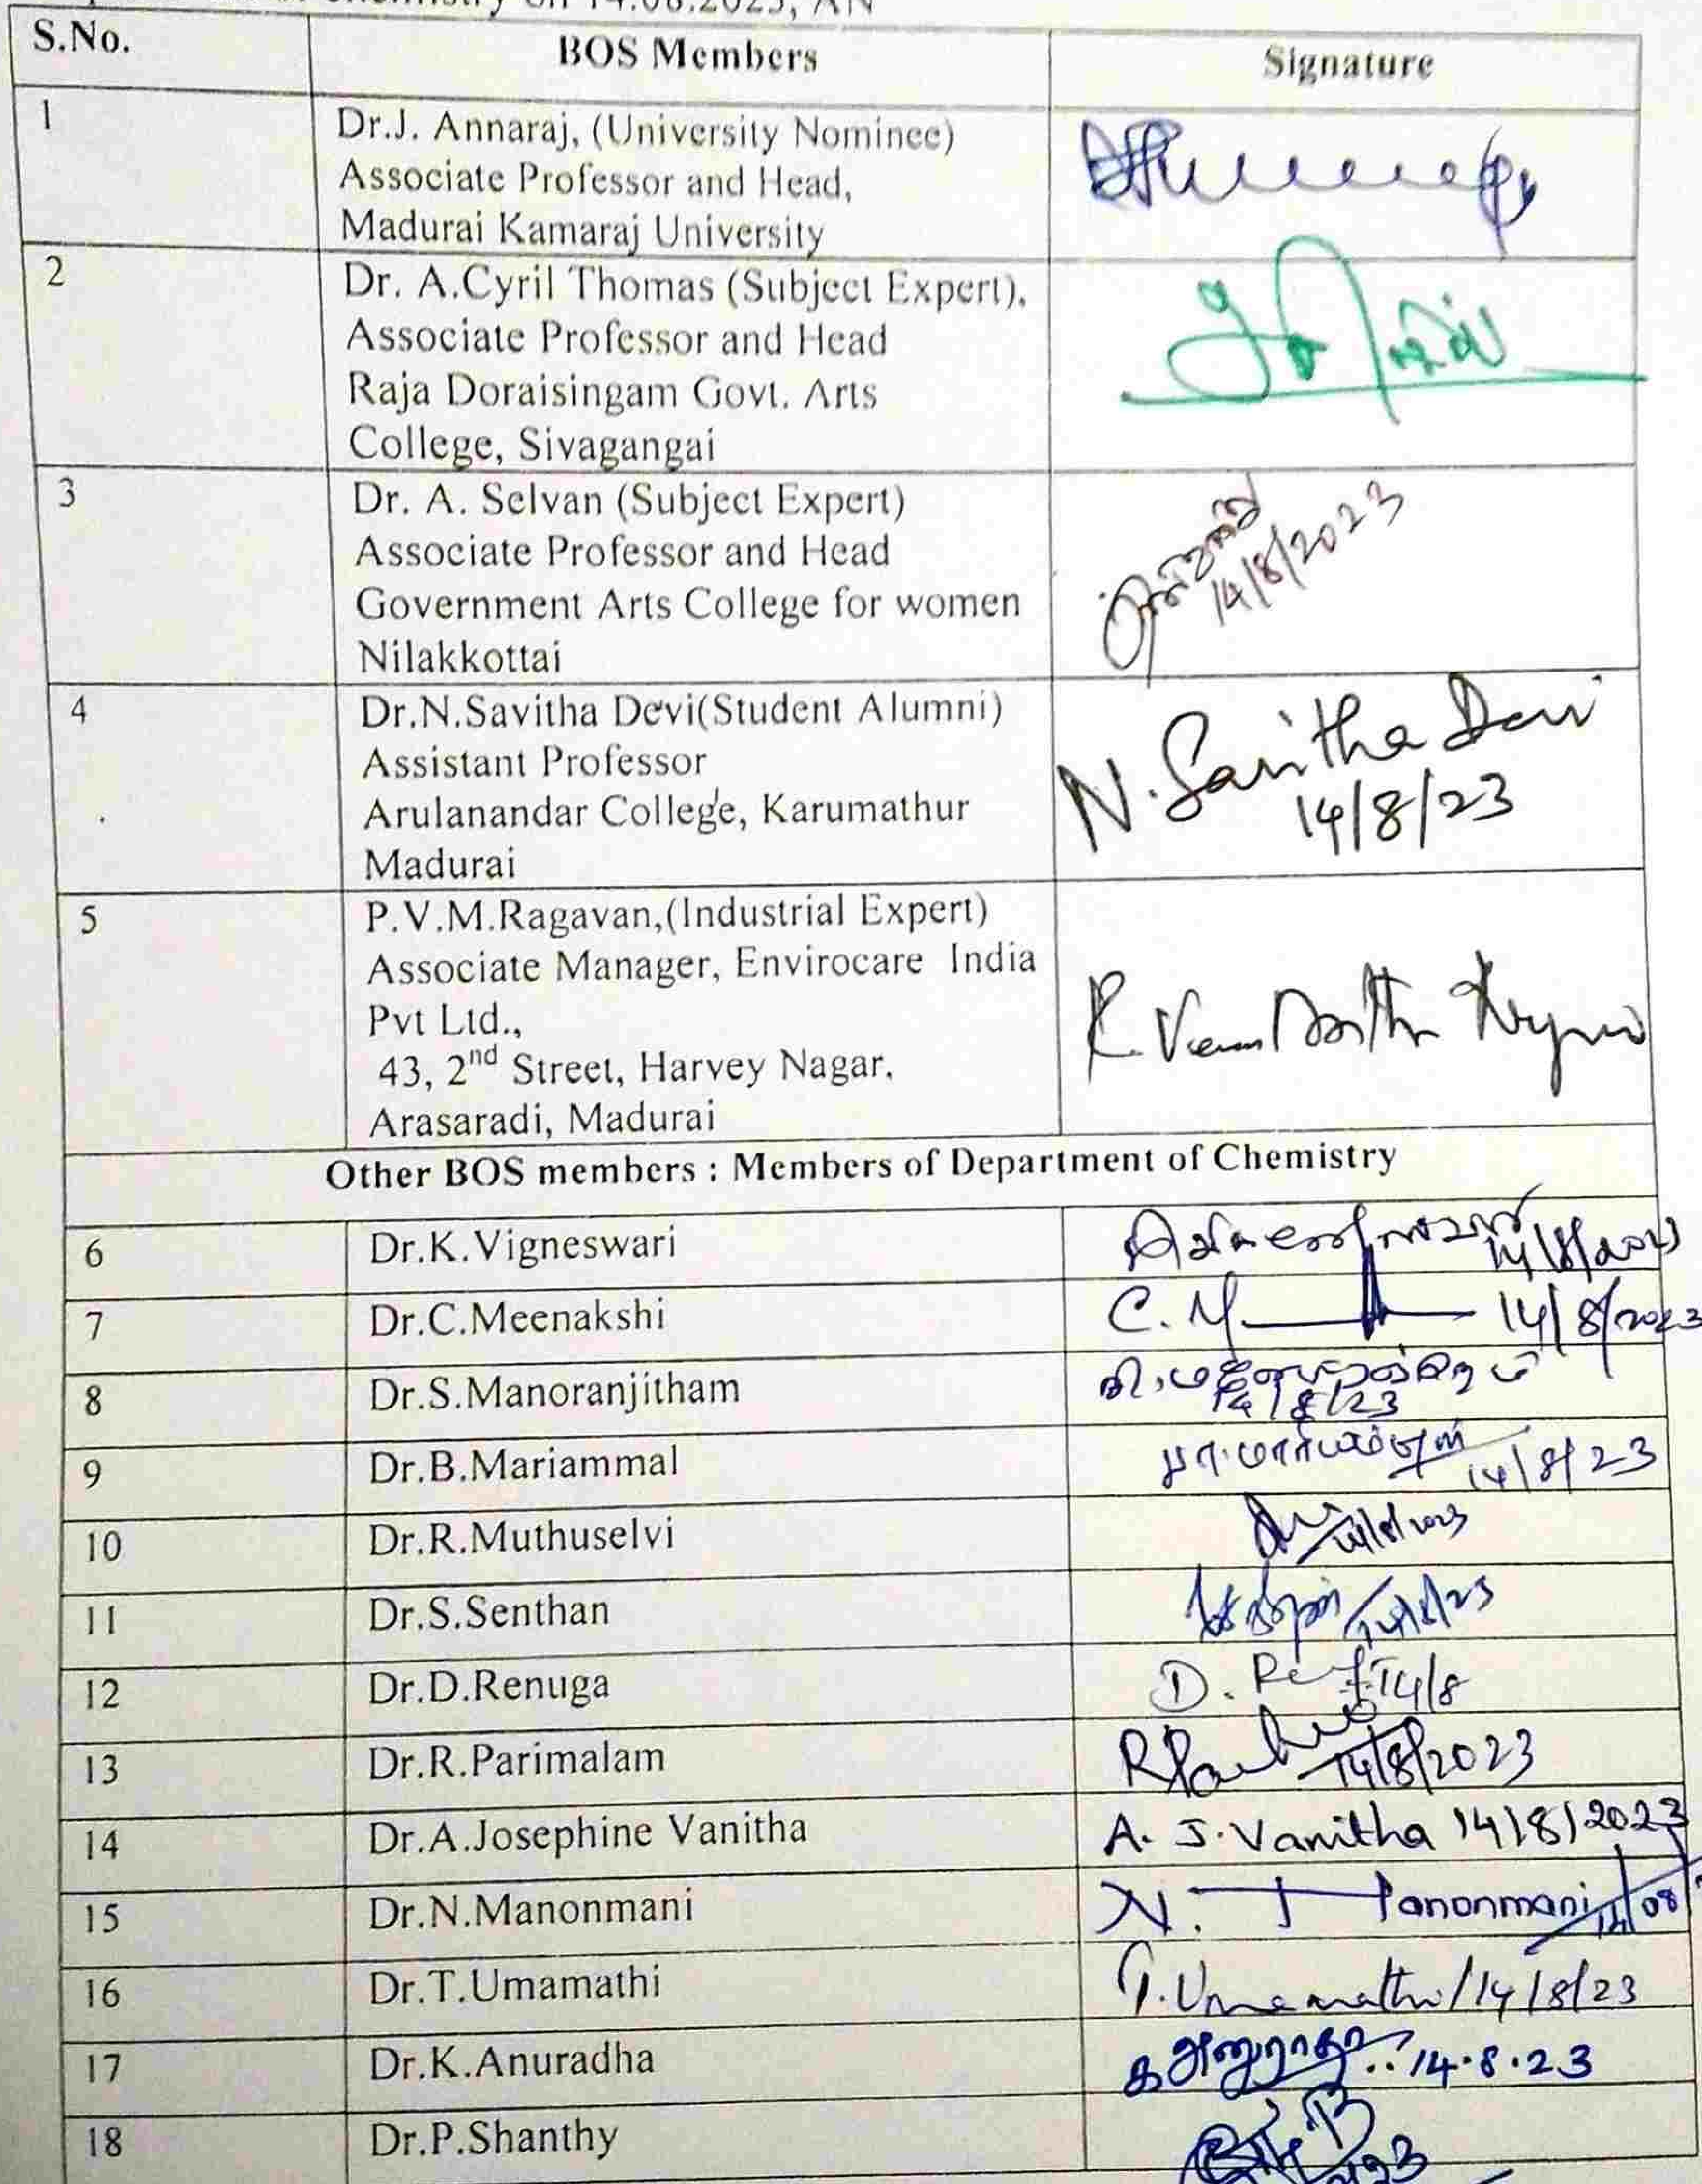 Chemistry on 14.08.2023, AN
S.No. BOS Members Signature
1 Dr.J. Annaraj, (University Nominee)
Associate Professor and Head,
Madurai Kamaraj University
2 Dr. A.Cyril Thomas (Subject Expert),
Associate Professor and Head
Raja Doraisingam Govt. Arts
College, Sivagangai
3 Dr. A. Selvan (Subject Expert)
Associate Professor and Head
Government Arts College for women
Nilakkottai
14/8/2023
4 Dr.N.Savitha Devi(Student Alumni)
Assistant Professor
Arulanandar College, Karumathur
Madurai
N. Savitha Devi
14/8/23
5 P.V.M.Ragavan,(Industrial Expert)
Associate Manager, Envirocare India
Pvt Ltd.,
43, 2nd Street, Harvey Nagar,
Arasaradi, Madurai
Other BOS members : Members of Department of Chemistry
6 Dr.K.Vigneswari 14/8/2023
7 Dr.C.Meenakshi C.M 14/8/2023
8 Dr.S.Manoranjitham
14/8/23
9 Dr.B.Mariammal பா.மாரியம்மாள் 14/8/23
10 Dr.R.Muthuselvi 14/8/2023
11 Dr.S.Senthan 14/8/23
12 Dr.D.Renuga D. 14/8
13 Dr.R.Parimalam 14/8/2023
14 Dr.A.Josephine Vanitha A. J. Vanitha 14/8/2023
15 Dr.N.Manonmani N. Manonmani 14/08
16 Dr.T.Umamathi T.Umamathi/14/8/23
17 Dr.K.Anuradha க அனுராதா 14.8.23
18 Dr.P.Shanthy